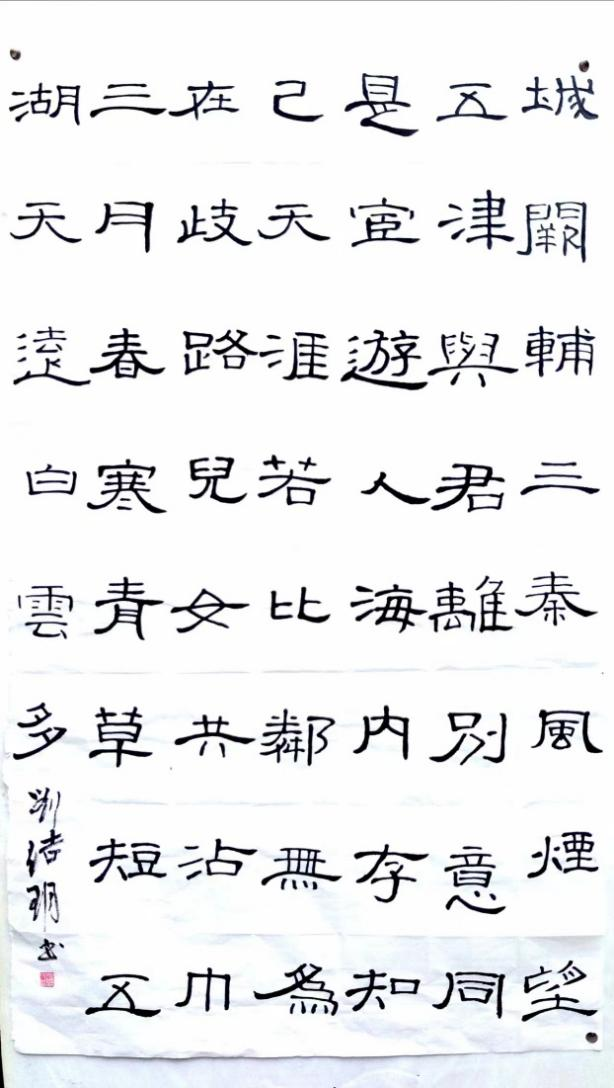 城闕輔三秦風煙望
五津與君離別意同
是宦遊人海内存知
己天涯若比鄰無爲
在歧路兒女共沾巾
三月春寒青草短五
湖天遠白雲多
劉结玥书